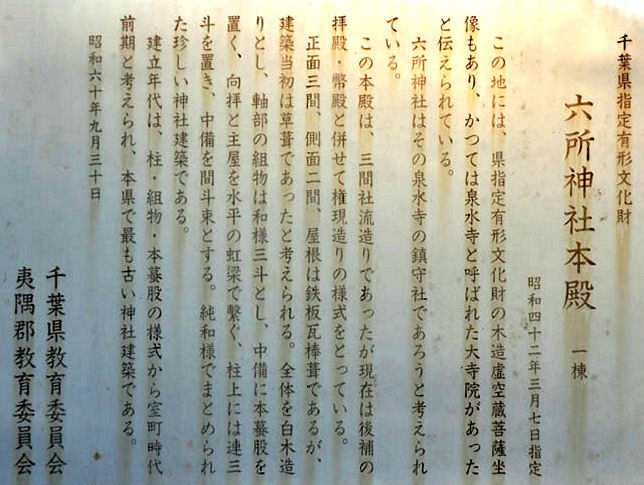 千葉県指定有形文化財
六所神社本殿 一棟
昭和四十二年三月七日指定
この地には、県指定有形文化財の木造虚空蔵菩薩坐
像もあり、かつては泉水寺と呼ばれた大寺院があった
と伝えられている。
六所神社はその泉水寺の鎮守社であろうと考えられ
ている。
この本殿は、三間社流造りであったが現在は後補の
拝殿・幣殿と併せて権現造りの様式をとっている。
正面三間、側面二間、屋根は鉄板瓦棒葺であるが、
建築当初は草葺であったと考えられる。全体を白木造
りとし、軸部の組物は和様三斗とし、中備に本蟇股を
置く、向拝と主屋を水平の虹梁で繋ぐ、柱上には連三
斗を置き、中備を間斗束とする。純和様でまとめられ
た珍しい神社建築である。
建立年代は、柱・組物・本蟇股の様式から室町時代
前期と考えられ、本県で最も古い神社建築である。
昭和六十年九月三十日
千葉県教育委員会
夷隅郡教育委員会